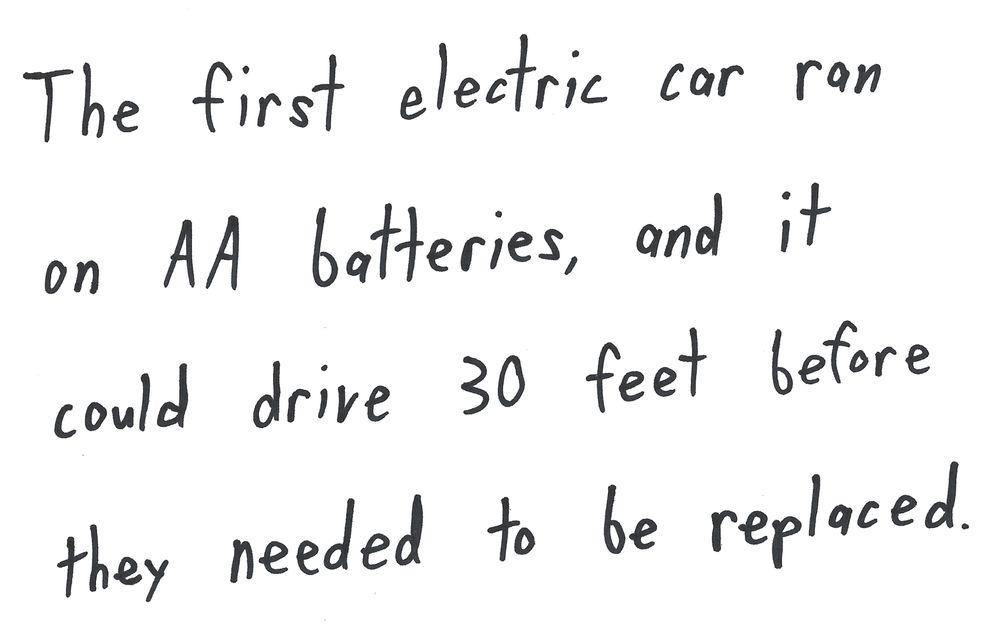 The first electric car ran
on AA batteries, and it
could drive 30 feet before
they needed to be replaced.